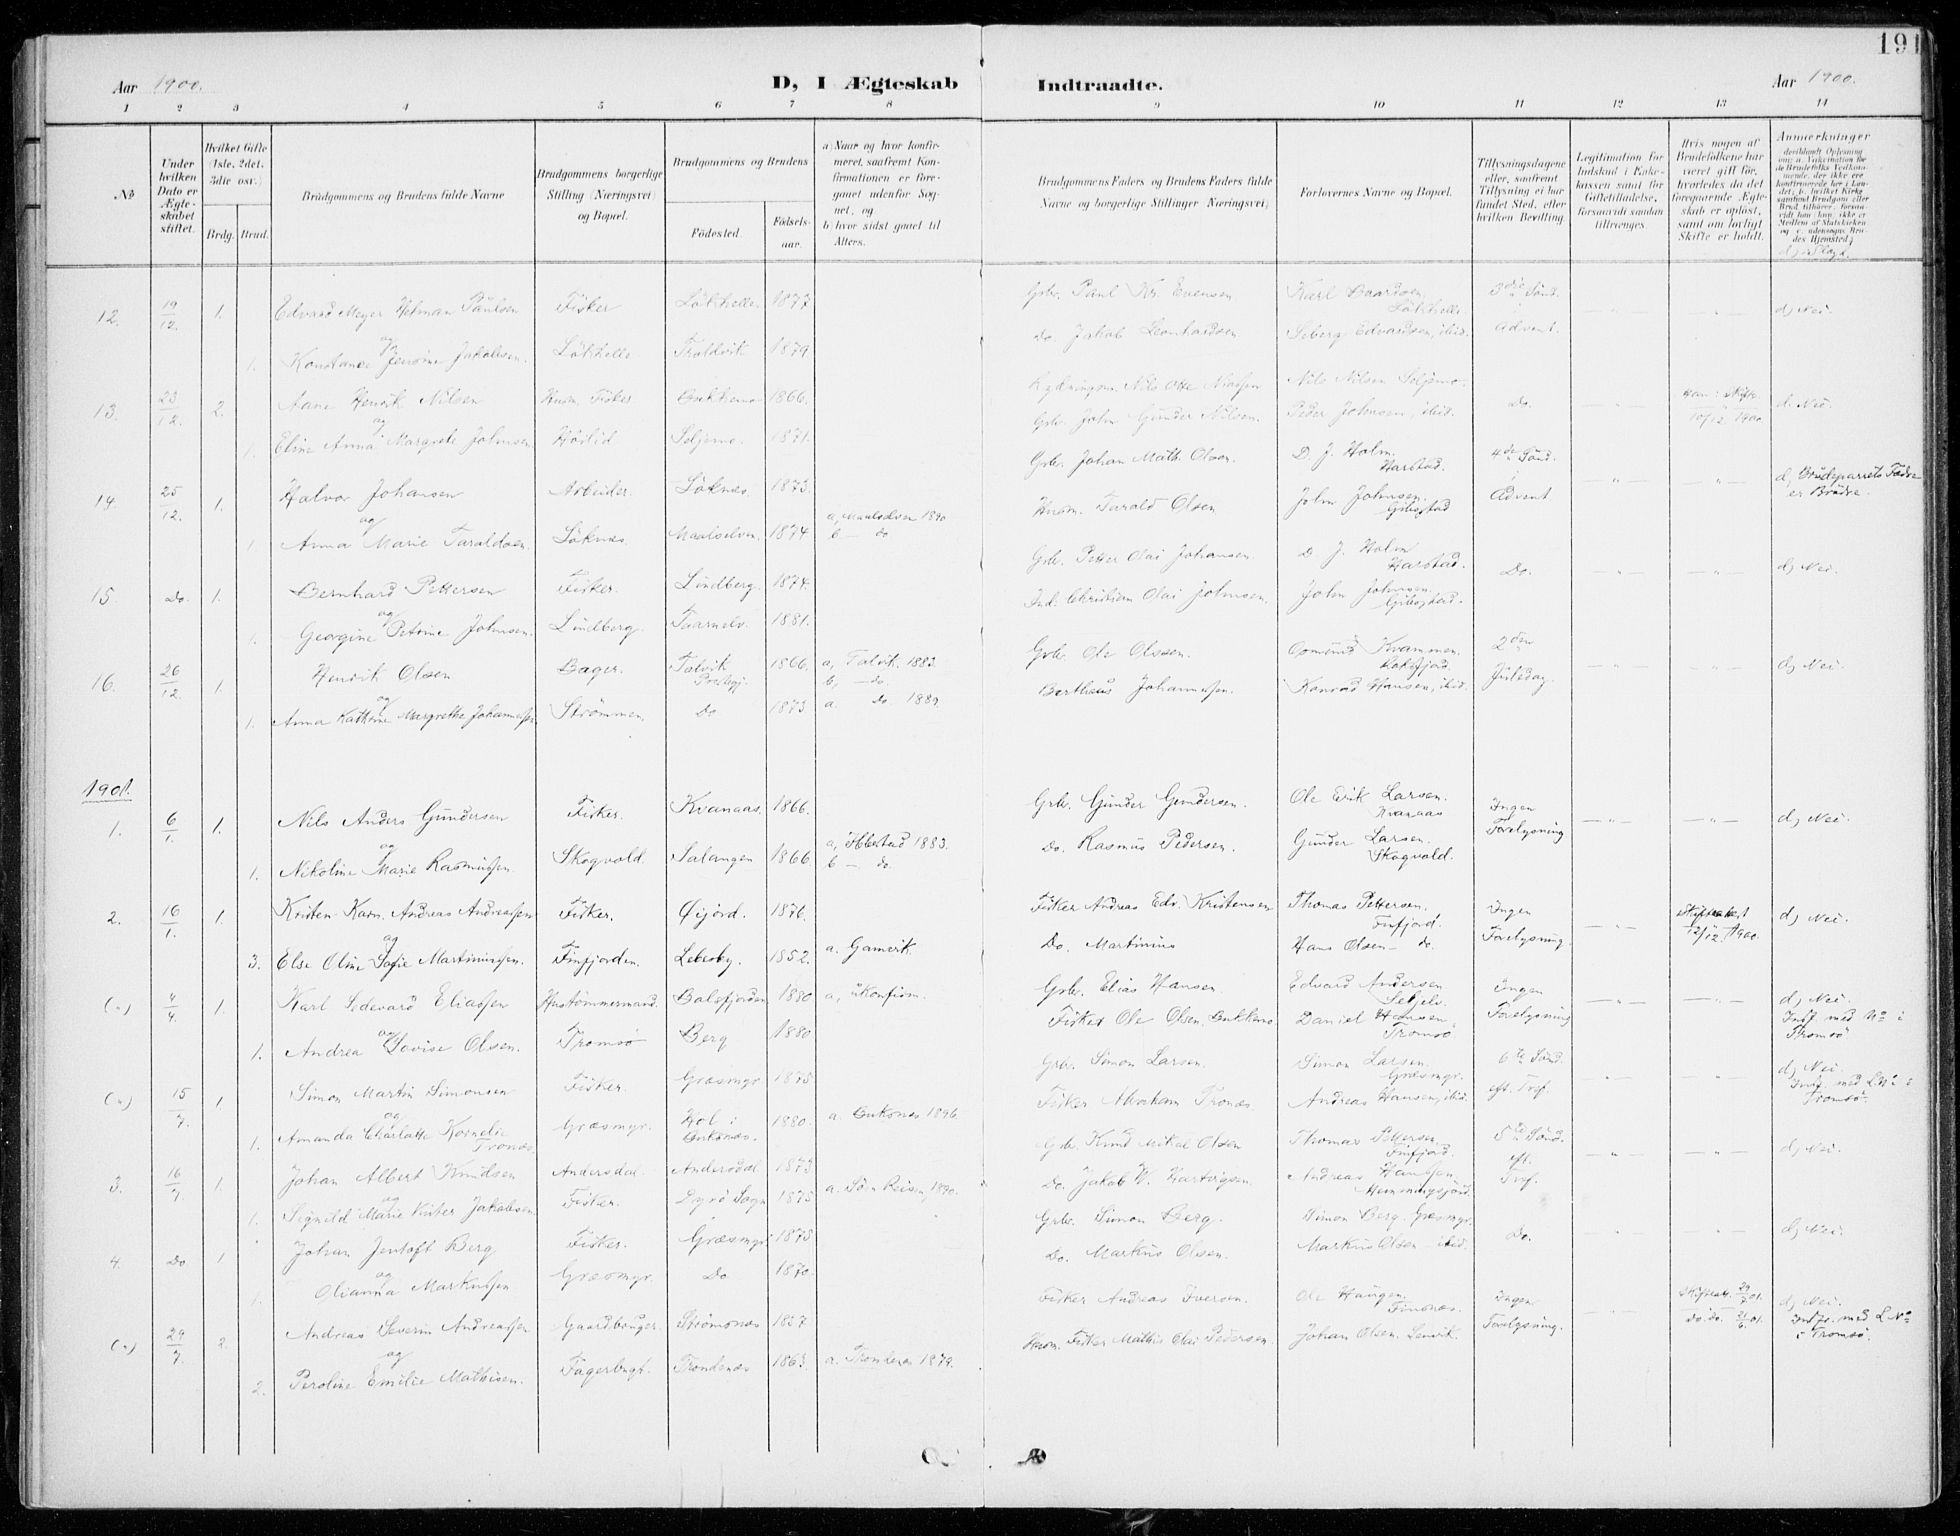 191
Aar 1900. D, I Ægteskab Indtraadte. Aar 1900.
1 2 3 4 5 6 7 8 9 10 11 12 13 14
No
Under hvilken Dato er Ægteskabet stiftet.
Hvilket Gifte (1ste, 2det, 3die osv.)
Brdg. Brud.
Brudgommens og Brudens fulde Navne
Brudgommens borgerlige Stilling (Næringsvei) og Bopæl.
Brudgommens og Brudens
Fødested. Fødselsaar.
a) Naar og hvor konfirmeret, saafremt Konfirmationen er foregaaet udenfor Sognet, og
b) hvor sidst gaaet til Alters.
Brudgommens Faders og Brudens Faders fulde Navne og borgerlige Stillinger (Næringsvei)
Forlovernes Navne og Bopæl.
Tillysningsdagene eller, saafremt Tillysning ei har fundet Sted, efter hvilken Bevilling.
Legitimation for Indskud i Enkekassen samt for Giftetilladelse, forsaavidt saadan tiltrænges
Hvis nogen af Brudefolkene har været gift før, hvorledes da det foregaaende Ægteskab er opløst, samt om lovligt Skifte er holdt.
Anmerkninger
12. 19/12. 1. Edvard Meyer Hetman Paulsen Fisker Løkhelle 1877 Grb. Paul Kr. Evensen Karl Baardsen, Løkhelle 3die Sønd. d, Nei.
og
1. Konstance Jensine Jakobsen. Løkhelle Troldvik 1879 Do. Jakob Leonhardsen Seberg Edvardsen, ibid. i Advent.
13. 23/12. 2. Aane Henrik Nilsen Husm. Fisker Bukkemo 1866. Nils Otto Nilssen Nils Nilsen Seljemo. Do. 10/12 1900 d. Nei.
og
1. Eline Anna Margrete Johnsen Høilid Seljemo. 1871. Grb. John Gunder Nilsen. Peder Johnsen, ibid.
14. 25/12. 1. Halvor Johansen Arbeider. Løknes. 1873. Grb. Johan Math. Olsen. D. J. Holm. Harstad. 4de Sønd. d, Brudeparrets Fædre er Brødre.
og
1. Anna Marie Taraldsen. Løknes. Maalselven. 1874 a, Maalselven 1890 b — do Husm. Tarald Olsen John Johnsen. Gibostad i Advent
15. Do. 1. Bernhard Pettersen Fisker. Lundberg. 1874. Grb. Petter Olai Johansen. D. J. Holm Harstad. Do. d, Nei.
og
1. Georgine Petrine Johnsen. Lundberg. Taarnelv. 1881. Ind. Christian Olai Johnsen. John Johnsen. Gibostad.
16. 26/12. 1. Henrik Olsen Bager. Talvik Prestegj. 1866. a, Talvik. 1883. b, — do. Grb. Ole Olssen. Kvammen. 2den d, Nei.
og
1. Anna Kathrine Margrethe Johannessen Strømmen. Do 1873. a. Do. 1889. Bertheus Johannessen. Konrad Hansen, ibid. Juledag.
1901.
1. 6/1. 1. Nils Anders Gundersen Fisker. Kvanaas. 1866. Grb. Gunder Gundersen. Ole Erik Larsen. Kvanaas Ingen d, Nei.
og
1. Nikoline Marie Rasmussen. Skogvold. Salangen 1866 a, Ibbestad 1883. b — do. Do. Rasmus Pedersen. Gunder Larsen. Skogvold. Forelysning
2. 16/1. 1. Kristen Karn. Andreas Andreassen Fisker. Øijord. 1876. Fisker Andreas Edv. Kristensen Thomas Pettersen. Finfjord. Ingen 12/12 1900. d, Nei.
og
3. Else Oline Sofie Martinussen. Finfjorden. Lebesby. 1852. a. Gamvik. Do. Martinius Hans Olsen — do. Forelysning
(") 4/4. 1. Karl Sedevard Eliassen Hustømmermand. Balsfjorden 1880 a, ukonfirm. Grb. Elias Hansen Edvard Andersen Ingen d, Nei. Indf. med No i Tromsø
og
1. Andrea Lovise Olsen. Tromsø Berg 1880 Fisker Ole Olsen, Bukkemo Daniel Hansen Tromsø Forelysning
(") 15/7. 1 Simon Martin Simonsen Fisker. Græsmyr 1875 Grb. Simon Larsen. Simon Larsen. Græsmyr. 6te Sønd. d, Nei Indf. med L.No i Tromsø.
og
1. Amanda Charlotte Kornelie Tronæs. Græsmyr. Hol i Buksnæs. 1880. a. Buksnes 1896. Fisker Abraham Tronæs Andreas Hansen, ibid. eft. Tref.
3. 16/7. 1. Johan Albert Knudsen Andersdal. Andersdal 1873 Grb. Knud Mikal Olsen Thomas Pettersen. Finfjord. 5te Sønd. d, Nei.
og
1. Signild Marie Jakobsen. Fisker. Dyrø Sogn 1875 a. Sør-Reisen, 1890. Do. Jakob W. Hartvigsen. Andreas Hanssen. Hemmingsjord. eft. Tref.
4. Do 1 Johan Jentoft Berg Fisker. Græsmyr 1875 Grb. Simon Berg. Simon Berg. Græsmyr. Do. d, Nei.
og
1. Olianna Markussen Græsmyr. Do 1870. Do. Markus Olsen. Markus Olsen — ibid.
(") 29/7. 2. Andreas Severin Andreassen Gaardbruger. Strømsnæs 1857 Fisker Andreas Iversen. Ole Haugen. Finsnæs. Ingen 29/7 01. d, Nei. Indf. med L No i Tromsø.
og
2. Peroline Emilie Mathisen. Fagerbugt. Trondenæs 1863. a. Trondenæs 1879. Husm. Fisker Mathis Olai Pedersen. Johan Olsen, Lenvik. Forelysning. Do. do. 21/6 01.